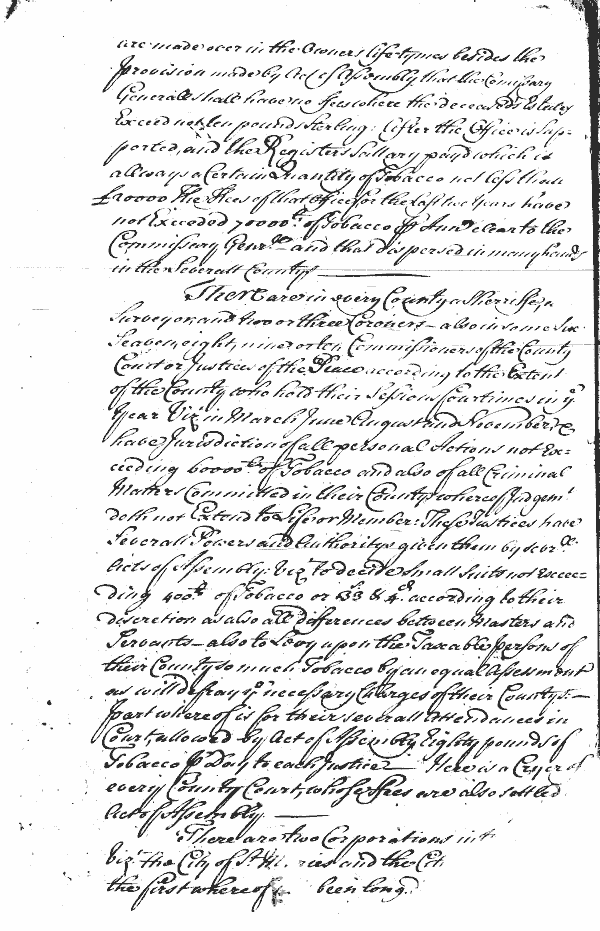 are made over in the Owners life-tymes besides the
provision made by Act of Assembly that the Comissary
Generall shall have no ffees where the deceaseds Estates
Exceed not ten pounds sterling: After the Office is sup-
ported, and the Registers Sallary payd which is
allways a Certain Quantity of Tobacco not less than
20000 The ffees of that Office for the last two Years have
not Exceeded 70000lt of Tobacco p Ann clear to the
Commissary Genrll and that dispersed in many hands
in the Severall Countys
There are in every County a Sherriffe, a
Surveyor, and two or three Coroners - also in some Six
Seaven, eight, nine or ten Commissioners of the County
Court or Justices of the Peace according to the Extent
of the County who hold their Sessions four times in ye
Year Viz in March June August and November &
have Jurisdiction of all personal Actions not Ex-
ceeding 60000lt of Tobacco and also of all Criminal
Matters Committed in their County whereof Judgemt
doth not Extend to Life or Member: These Justices have
Severall Powers and Authoritys given them by sevrll
Acts of Assembly: Viz To decide Small Suits not Excee-
ding 400lt of Tobacco or 33s & 4d according to their
discretion as also all differences between Masters and
Servants - also to Levy upon the Taxeable persons of
their County so much Tobacco by an equal Assessment
as will defray ye necessary Charges of their Countys: -
part whereof is for their severall attendances in
Court, allowed by Act of Assembly Eighty pounds of
Tobacco p Day to each Justice - Here is a Cryer of
every County Court, whose ffees are also settled
Act of Assembly
There are two Corporations in
Viz the City of St. and the
the first whereof been long